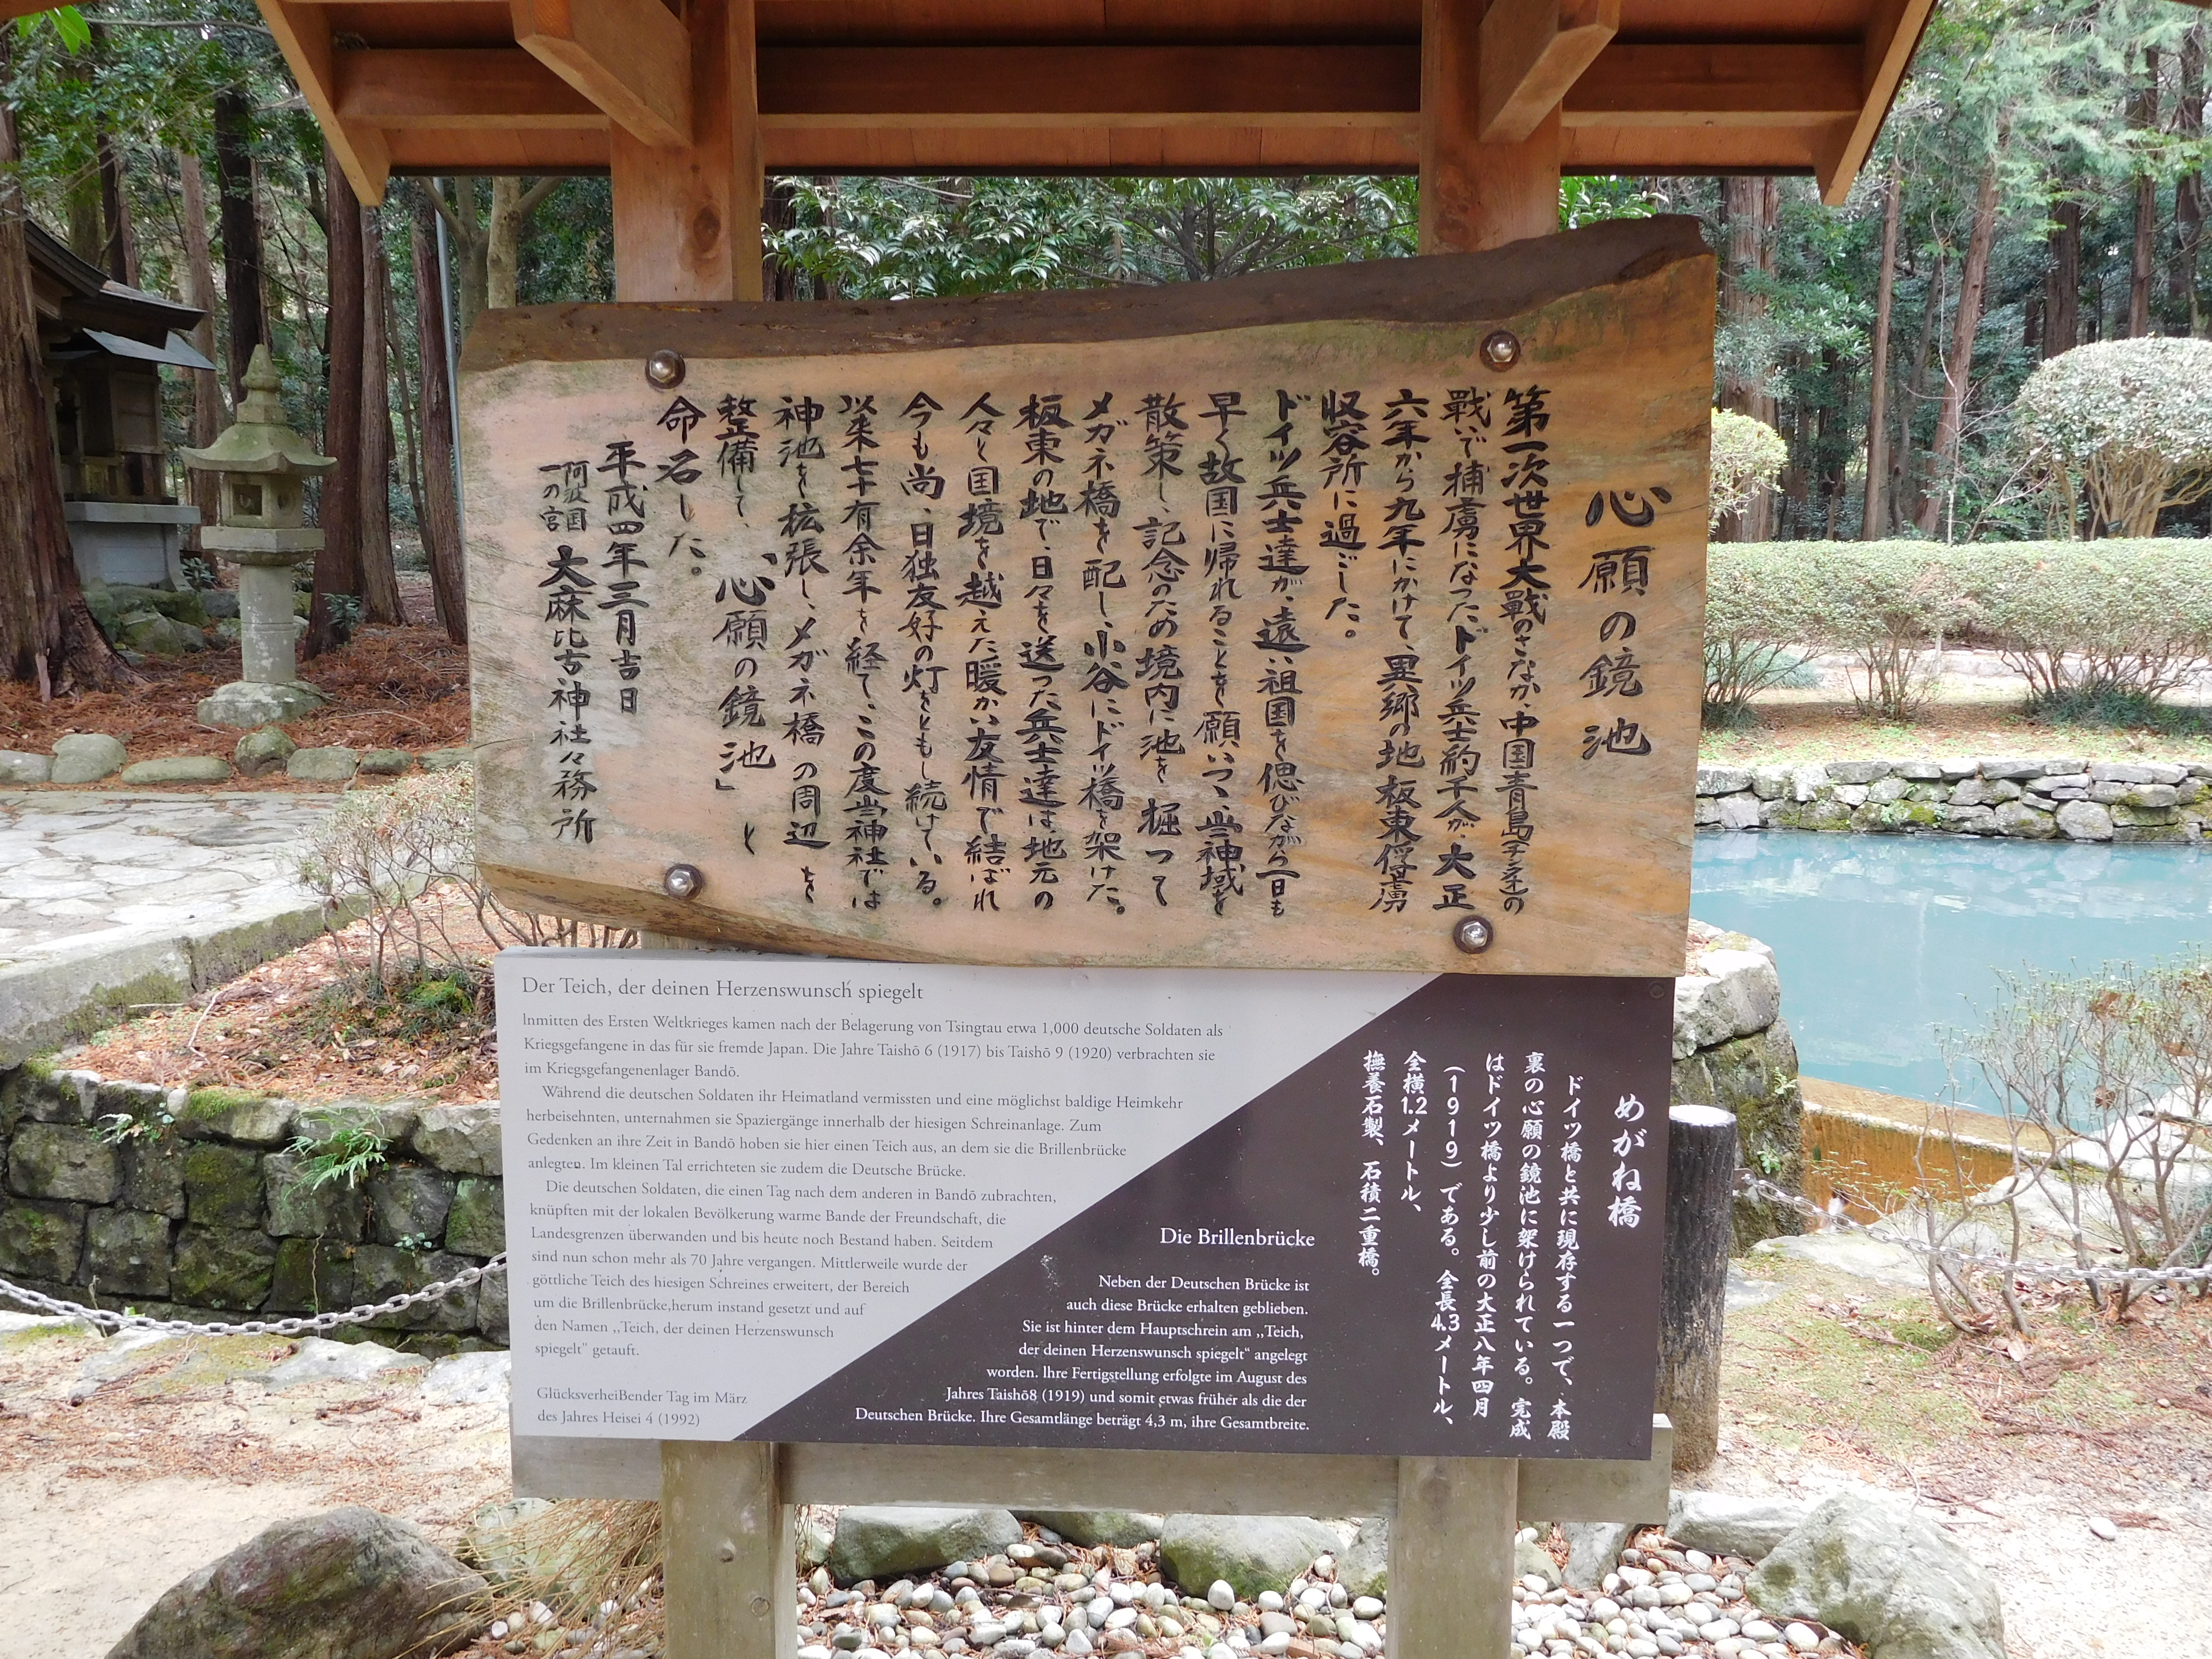 心願の鏡池
第一次世界大戰のさなか、中国青島(チンタオ)の
戰いで捕虜になったドイツ兵士約千人が大正
六年から九年にかけて、異郷の地板東俘虜
収容所に過ごした。
ドイツ兵士達が、遠い祖国を偲びながら一日も
早く故国に帰れることを願いつつ、当神域を
散策し、記念のため境内に池を掘って
メガネ橋を配し、小谷にドイツ橋を架けた。
板東の地で、日々を送った兵士達は、地元の
人々と国境を越えた暖かい友情で結ばれ
今も尚、日独友好の灯をともし続けている。
以来七十有余年を経て、この度当神社では
神池を拡張し、メガネ橋の周辺を
整備して、「心願の鏡池」と
命名した。
平成四年三月吉日
阿波国
一の宮
大麻比古神社々務所
Der Teich, der deinen Herzenswunsch spiegelt
Inmitten des Ersten Weltkrieges kamen nach der Belagerung von Tsingtau etwa 1,000 deutsche Soldaten als
Kriegsgefangene in das für sie fremde Japan. Die Jahre Taishō 6 (1917) bis Taishō 9 (1920) verbrachten sie
im Kriegsgefangenenlager Bandō.
Während die deutschen Soldaten ihr Heimatland vermissten und eine möglichst baldige Heimkehr
herbeisehnten, unternahmen sie Spaziergänge innerhalb der hiesigen Schreinanlage. Zum
Gedenken an ihre Zeit in Bandō hoben sie hier einen Teich aus, an dem sie die Brillenbrücke
anlegten. Im kleinen Tal errichteten sie zudem die Deutsche Brücke.
Die deutschen Soldaten, die einen Tag nach dem anderen in Bandō zubrachten,
knüpften mit der lokalen Bevölkerung warme Bande der Freundschaft, die
Landesgrenzen überwanden und bis heute noch Bestand haben. Seitdem
sind nun schon mehr als 70 Jahre vergangen. Mittlerweile wurde der
göttliche Teich des hiesigen Schreines erweitert, der Bereich
um die Brillenbrücke,herum instand gesetzt und auf
den Namen ,,Teich, der deinen Herzenswunsch
spiegelt" getauft.
Glücksverheißender Tag im März
des Jahres Heisei 4 (1992)
めがね橋
ドイツ橋と共に現存する一つで、本殿
裏の心願の鏡池に架けられている。完成
はドイツ橋より少し前の大正八年四月
(1919)である。全長4.3メートル、
全横1.2メートル、
撫養石製、石積二重橋。
Die Brillenbrücke
Neben der Deutschen Brücke ist
auch diese Brücke erhalten geblieben.
Sie ist hinter dem Hauptschrein am ,,Teich,
der deinen Herzenswunsch spiegelt" angelegt
worden. Ihre Fertigstellung erfolgte im August des
Jahres Taishō8 (1919) und somit etwas früher als die der
Deutschen Brücke. Ihre Gesamtlänge beträgt 4,3 m, ihre Gesamtbreite.